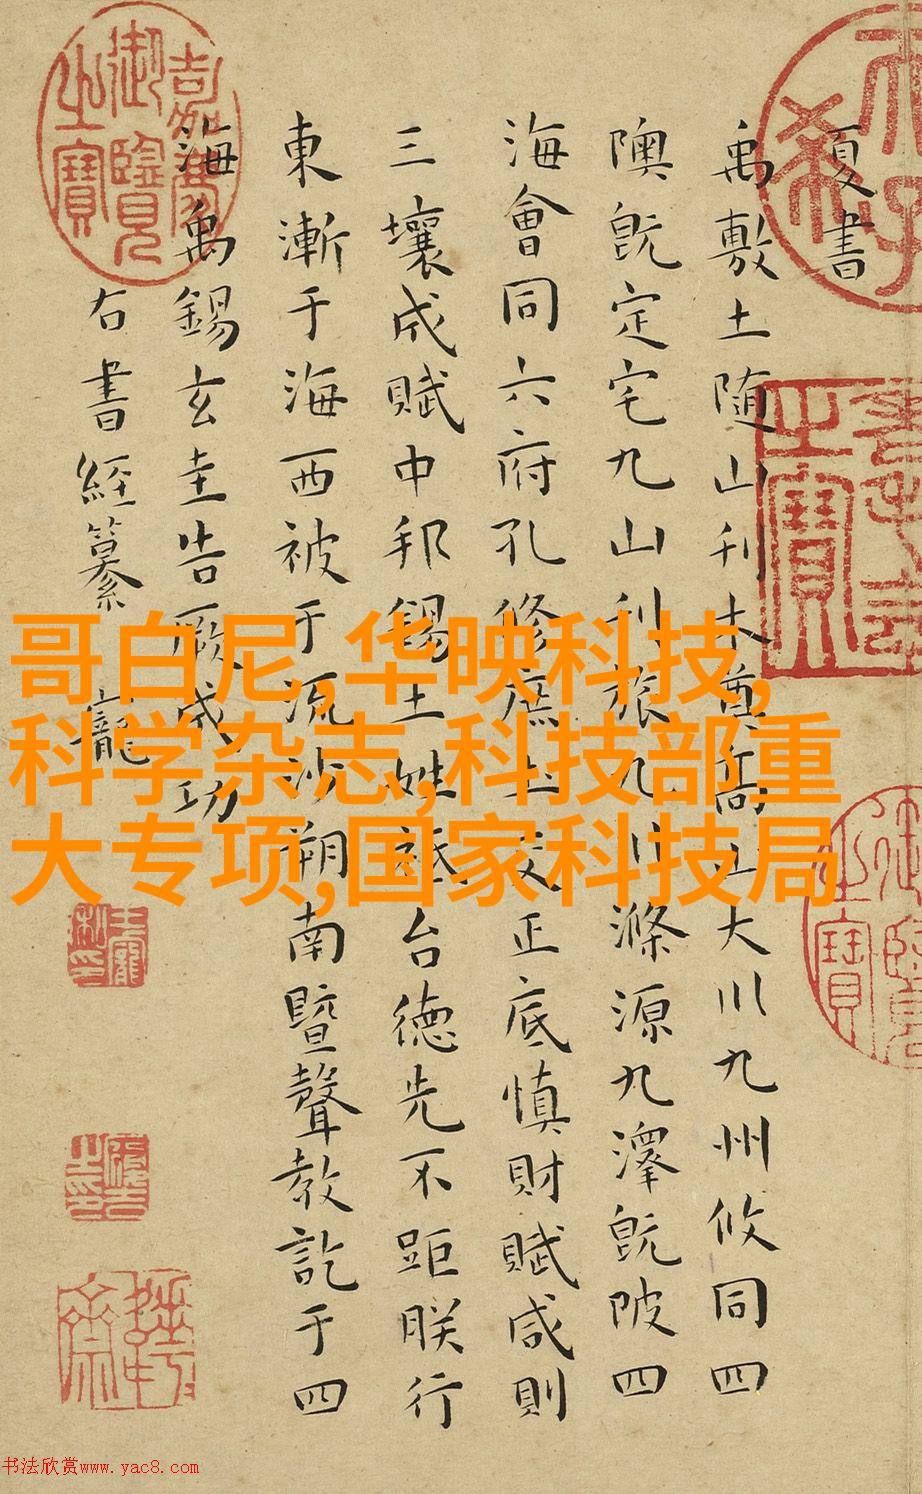 夏書
禹敷土随山刊木奠高山大川九州攸同四
隩既定宅九山刊旅九川滌源九澤既陂四
海會同六府孔修庶土交正底慎財賦咸則
三壤成賦中邦錫土姓祗台德先不距朕行
東漸于海西被于流沙朔南暨聲教訖于四
海禹錫玄圭告厥成功
右書經纂 寵
嘉慶御覽之寶
王寵私印
哥白尼,华映科技,
科学杂志,科技部重
大专项,国家科技局
书法欣赏www.yac8.com